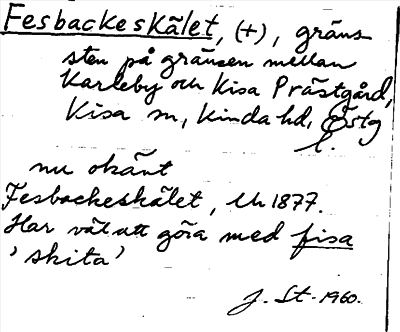 Fesbackeskälet, (+), gräns
sten på gränsen mellan
Karleby och Kisa Prästgård,
Kisa sn, Kinda hd, Östg
l.
nu okänt
Fesbackeskälet, Uh 1877.
Har väl att göra med fisa
'skita'
J. St. 1960.